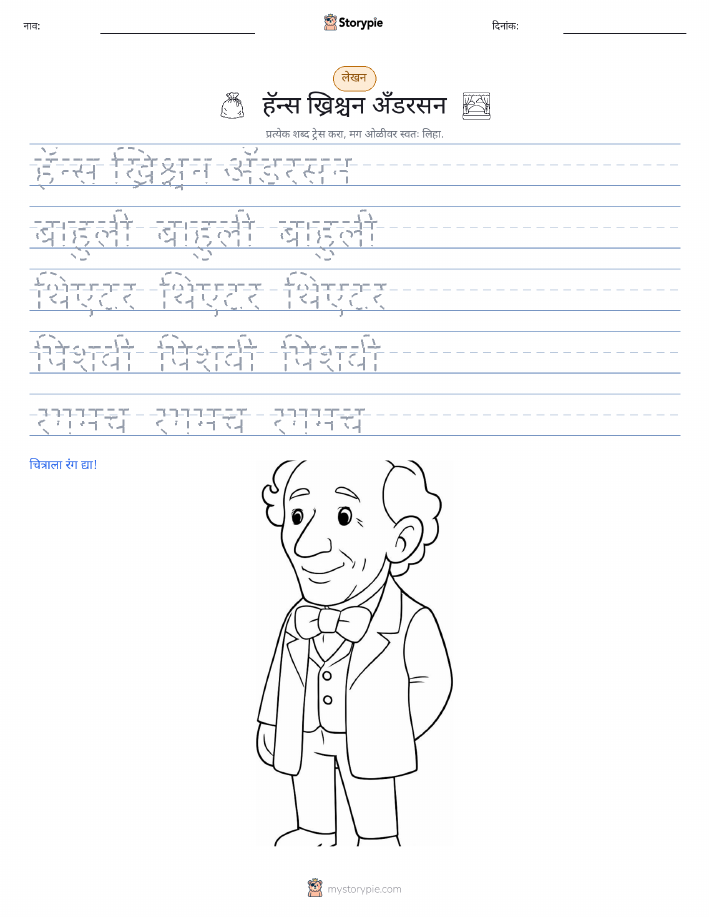 नाव:
Storypie
दिनांक:
लेखन
हॅन्स ख्रिश्चन अँडरसन
प्रत्येक शब्द ट्रेस करा, मग ओळीवर स्वतः लिहा.
हॅन्स ख्रिश्चन अँडरसन
बाहुली बाहुली बाहुली
थिएटर थिएटर थिएटर
पिशवी पिशवी पिशवी
रंगमंच रंगमंच रंगमंच
चित्राला रंग द्या!
mystorypie.com